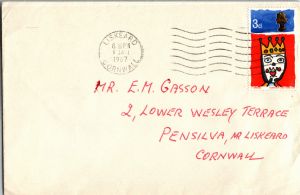 LISKEARD
6 15 PM
CORNWALL
1967
3d
MR. E.M. GASSON
2, LOWER WESLEY TERRACE
PENSILVA, NR LISKEARD
CORNWALL